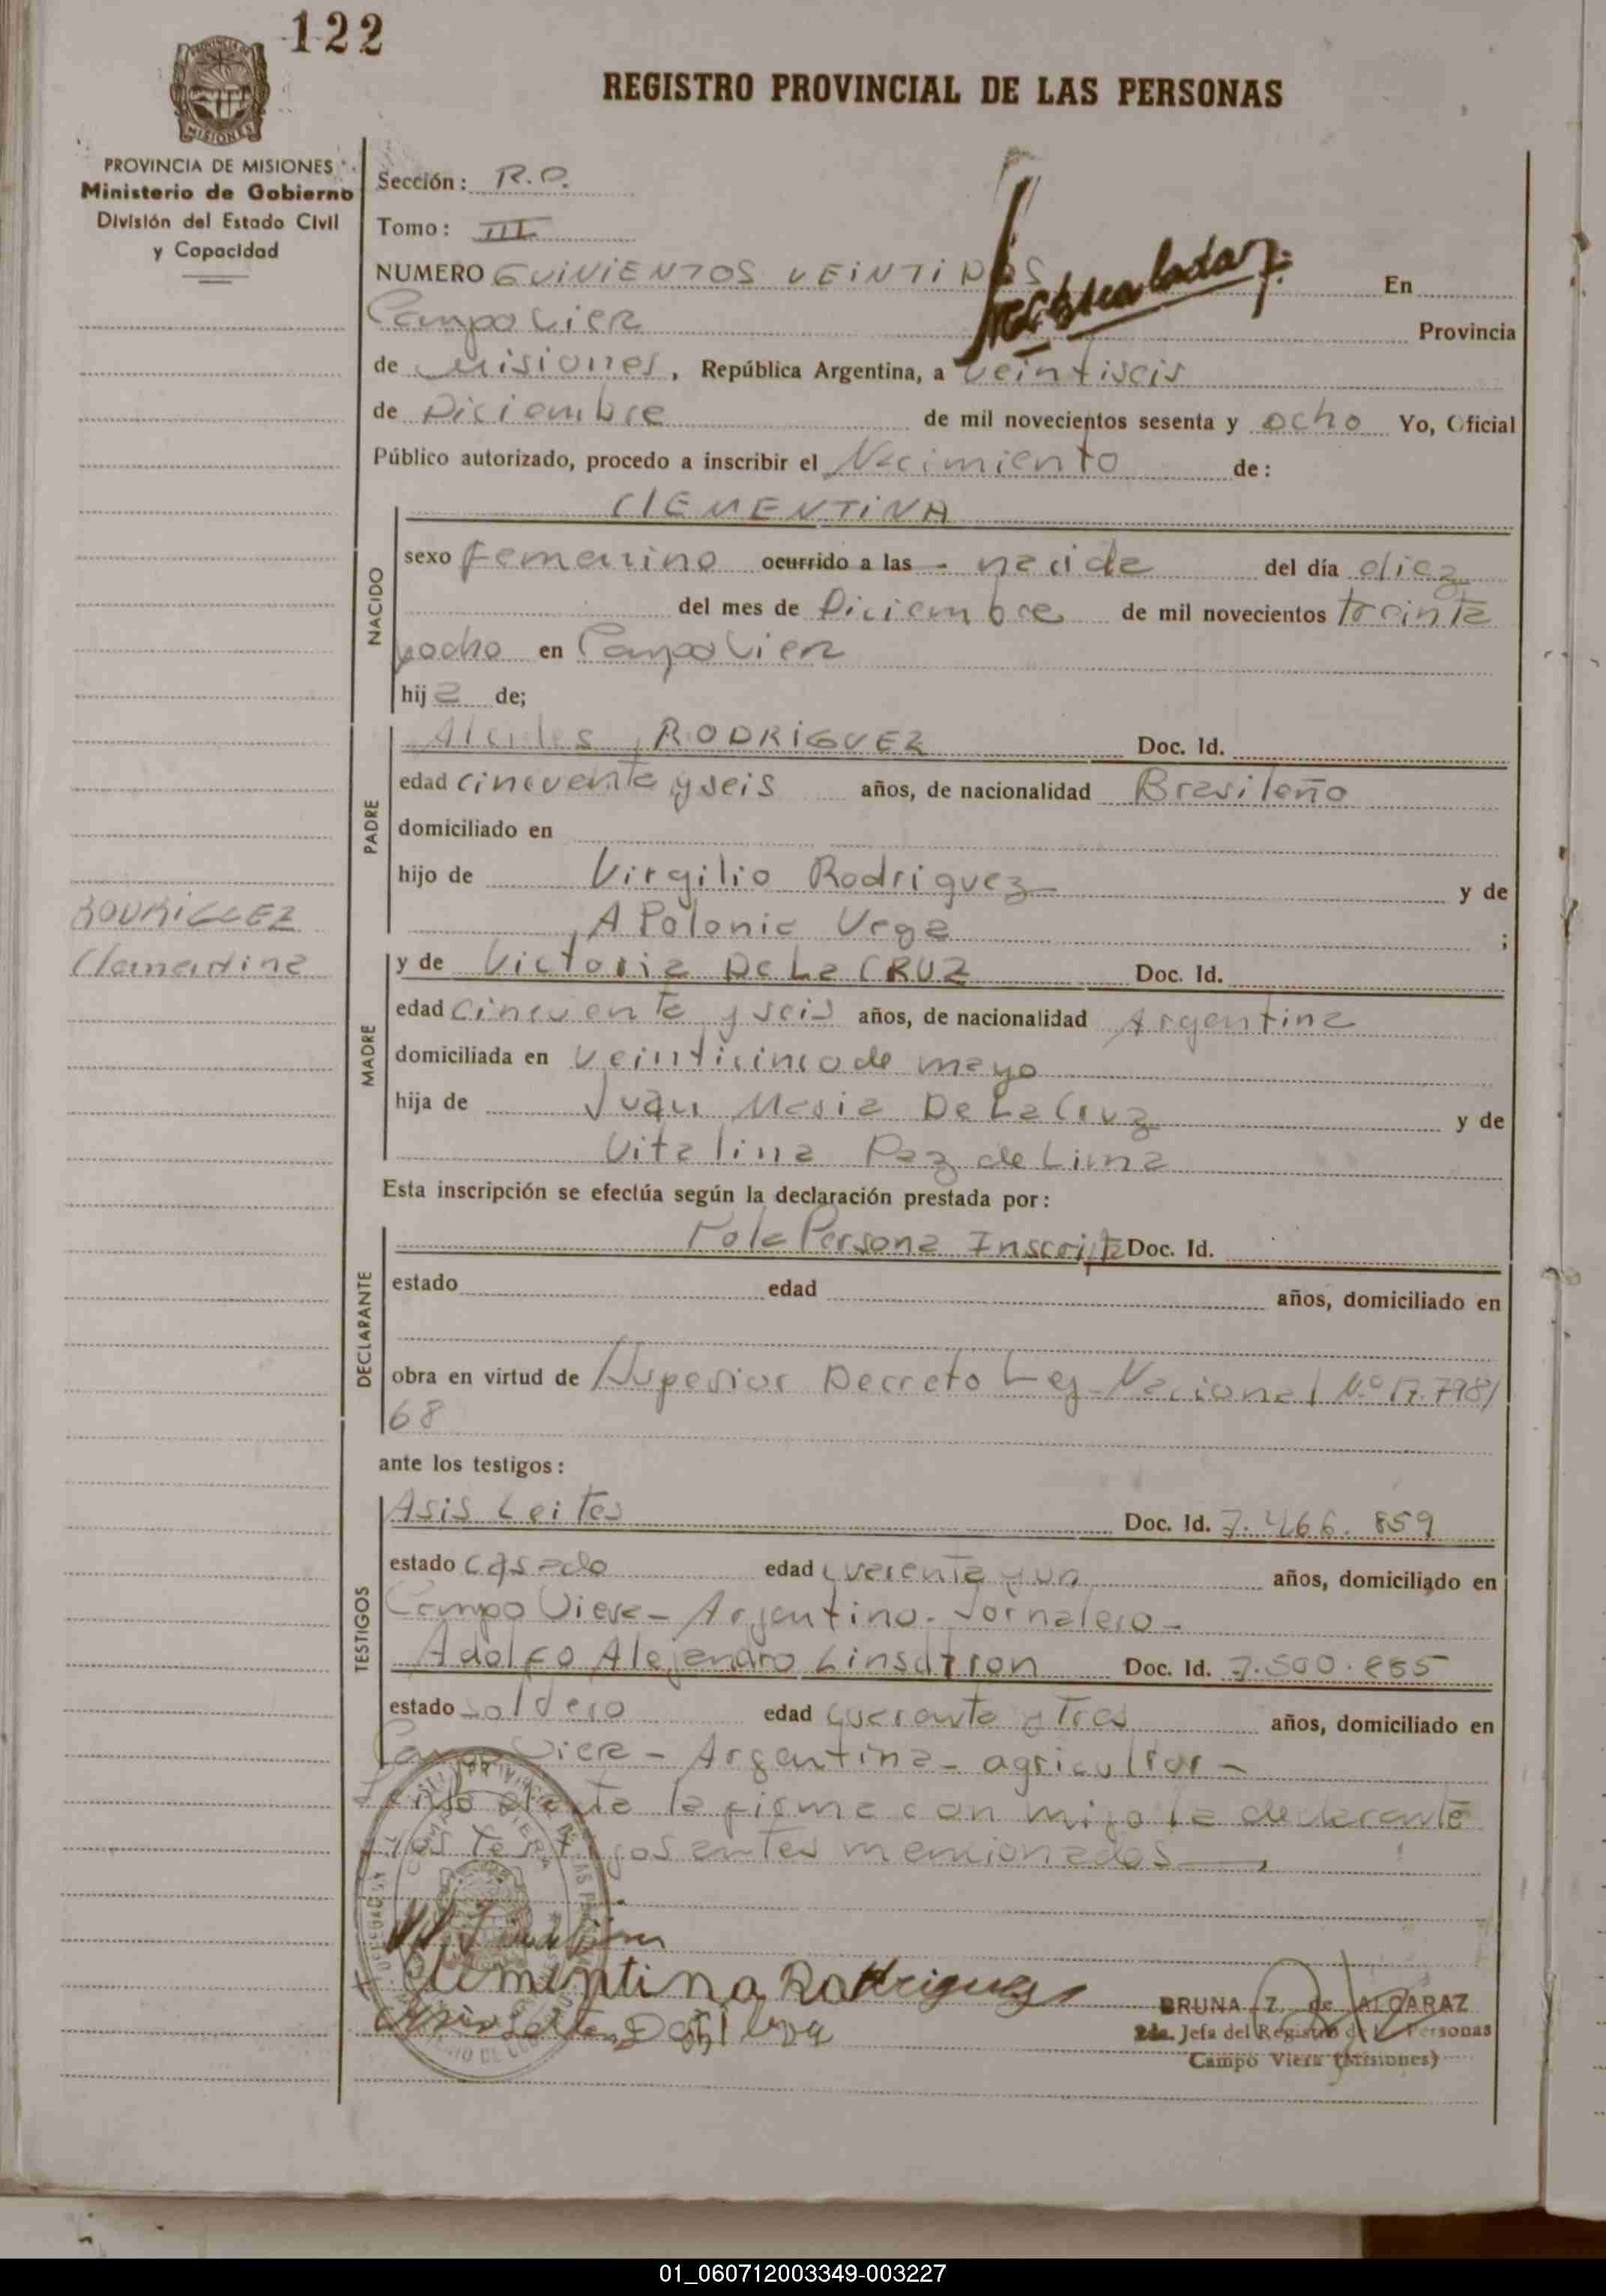 122
REGISTRO PROVINCIAL DE LAS PERSONAS
PROVINCIA DE MISIONES
Ministerio de Gobierno
División del Estado Civil
y Capacidad
Sección: R.P.
Tomo: III
NUMERO QUINIENTOS VEINTIDOS En
Campo Viera Provincia
de Misiones, República Argentina, a veintiseis
de Diciembre de mil novecientos sesenta y ocho Yo, Oficial
Público autorizado, procedo a inscribir el Nacimiento de:
ClEMENTINA
NACIDO
sexo Femenino ocurrido a las - nacida del día diez
del mes de Diciembre de mil novecientos treinta
yocho en Campo Viera
hija de;
PADRE
Alcides RODRIGUEZ Doc. Id.
edad cincuenta y seis años, de nacionalidad Brasileño
domiciliado en
hijo de Virgilio Rodriguez y de
APolonia Vega ;
RODRIGUEZ
Clementina
MADRE
y de Victoria De La CRUZ Doc. Id.
edad cincuenta y seis años, de nacionalidad Argentina
domiciliada en veinticinco de mayo
hija de Juan Maria De La Cruz y de
Vitalina Paz de Lima
Esta inscripción se efectúa según la declaración prestada por:
DECLARANTE
Persona Inscripta Doc. Id.
estado edad años, domiciliado en
obra en virtud de Superior Decreto Ley Nacional N.º 17.798/
68
ante los testigos:
TESTIGOS
Asis Leites Doc. Id. 7.466.859
estado casado edad cuarenta y un años, domiciliado en
Campo Viera - Argentino - Jornalero -
Adolfo Alejandro Doc. Id. 7.500.855
estado soltero edad cuarenta y Tres años, domiciliado en
Campo Viera - Argentina - agricultor -
Leida el acta la firma con migo la declarante
y los testigos antes mencionados
Clementina Rodriguez
BRUNA Z. de ALCARAZ
2da. Jefa del Registro de las Personas
Campo Viera (Misiones)
01_060712003349-003227